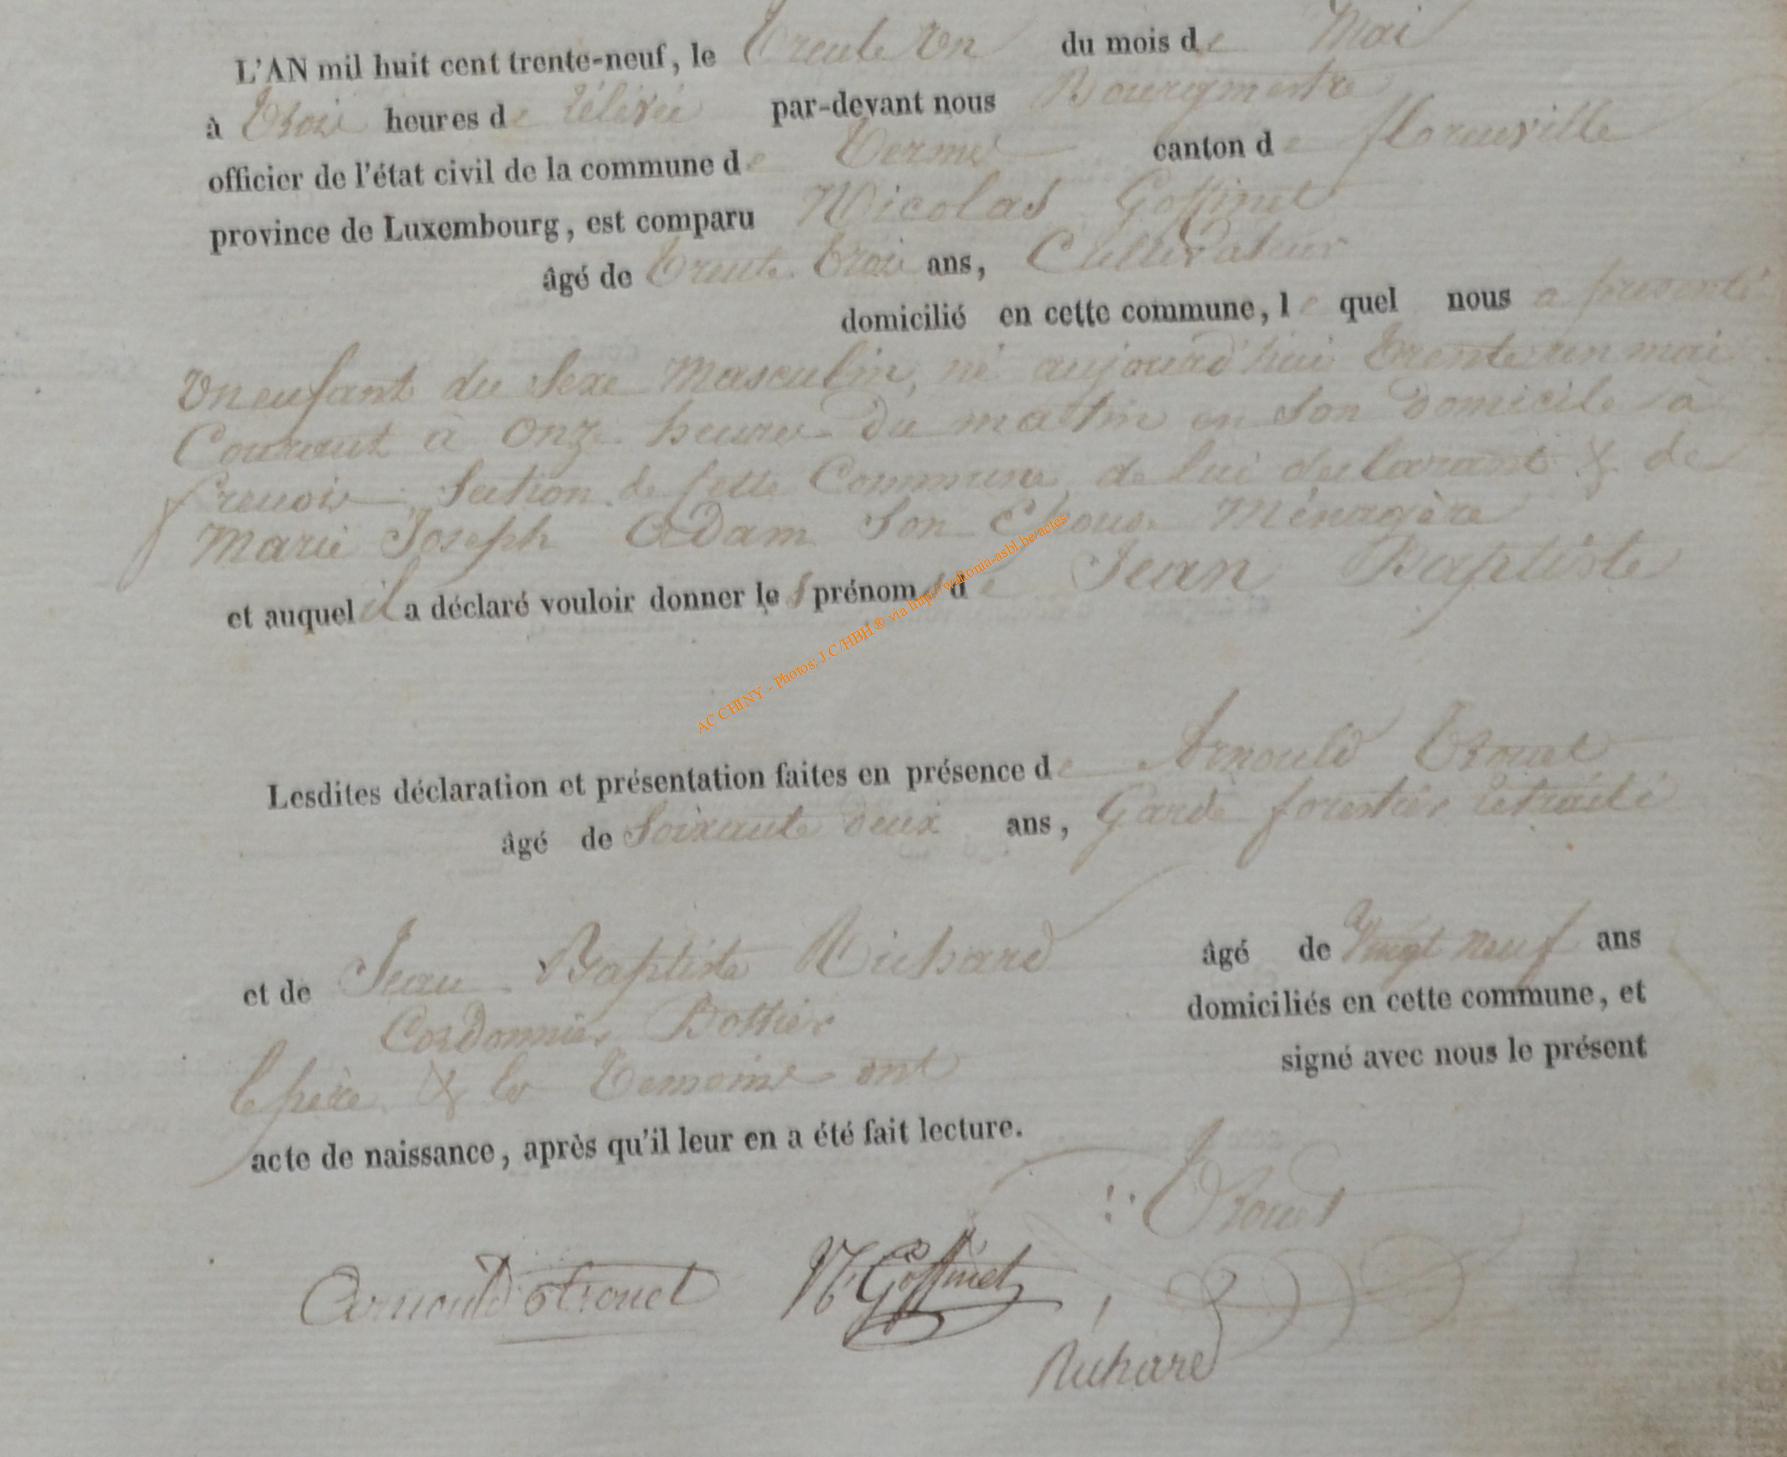 L'AN mil huit cent trente-neuf, le Trente Un du mois de Mai
à Trois heures de rélévée par-devant nous Bourgmestre
officier de l'état civil de la commune de Termes canton de florenville
province de Luxembourg, est comparu Nicolas Goffinet
âgé de trente trois ans, Cultivateur
domicilié en cette commune, le quel nous a présenté
Un enfant du Sexe Masculin, né aujourd'hui trente un mai
Courant à onze heures du matin en son domicile à
frenois Section de cette Commune, de lui déclarant & de
Marie Joseph Adam Son Epouse Ménagère
et auquel il a déclaré vouloir donner les prénoms de Jean Baptiste
AC CHINY - Photos: J C/HBH ® via http://wallonia-asbl.be/actes
Lesdites déclaration et présentation faites en présence de Arnould Trouet
âgé de Soixante deux ans, Garde forestier retraité
et de Jean Baptiste Richard âgé de Vingt neuf ans
Cordonnier Bottier domiciliés en cette commune, et
le père & les Temoins ont signé avec nous le présent
acte de naissance, après qu'il leur en a été fait lecture.
Trouet
Arnould Trouet N Goffinet
Richard